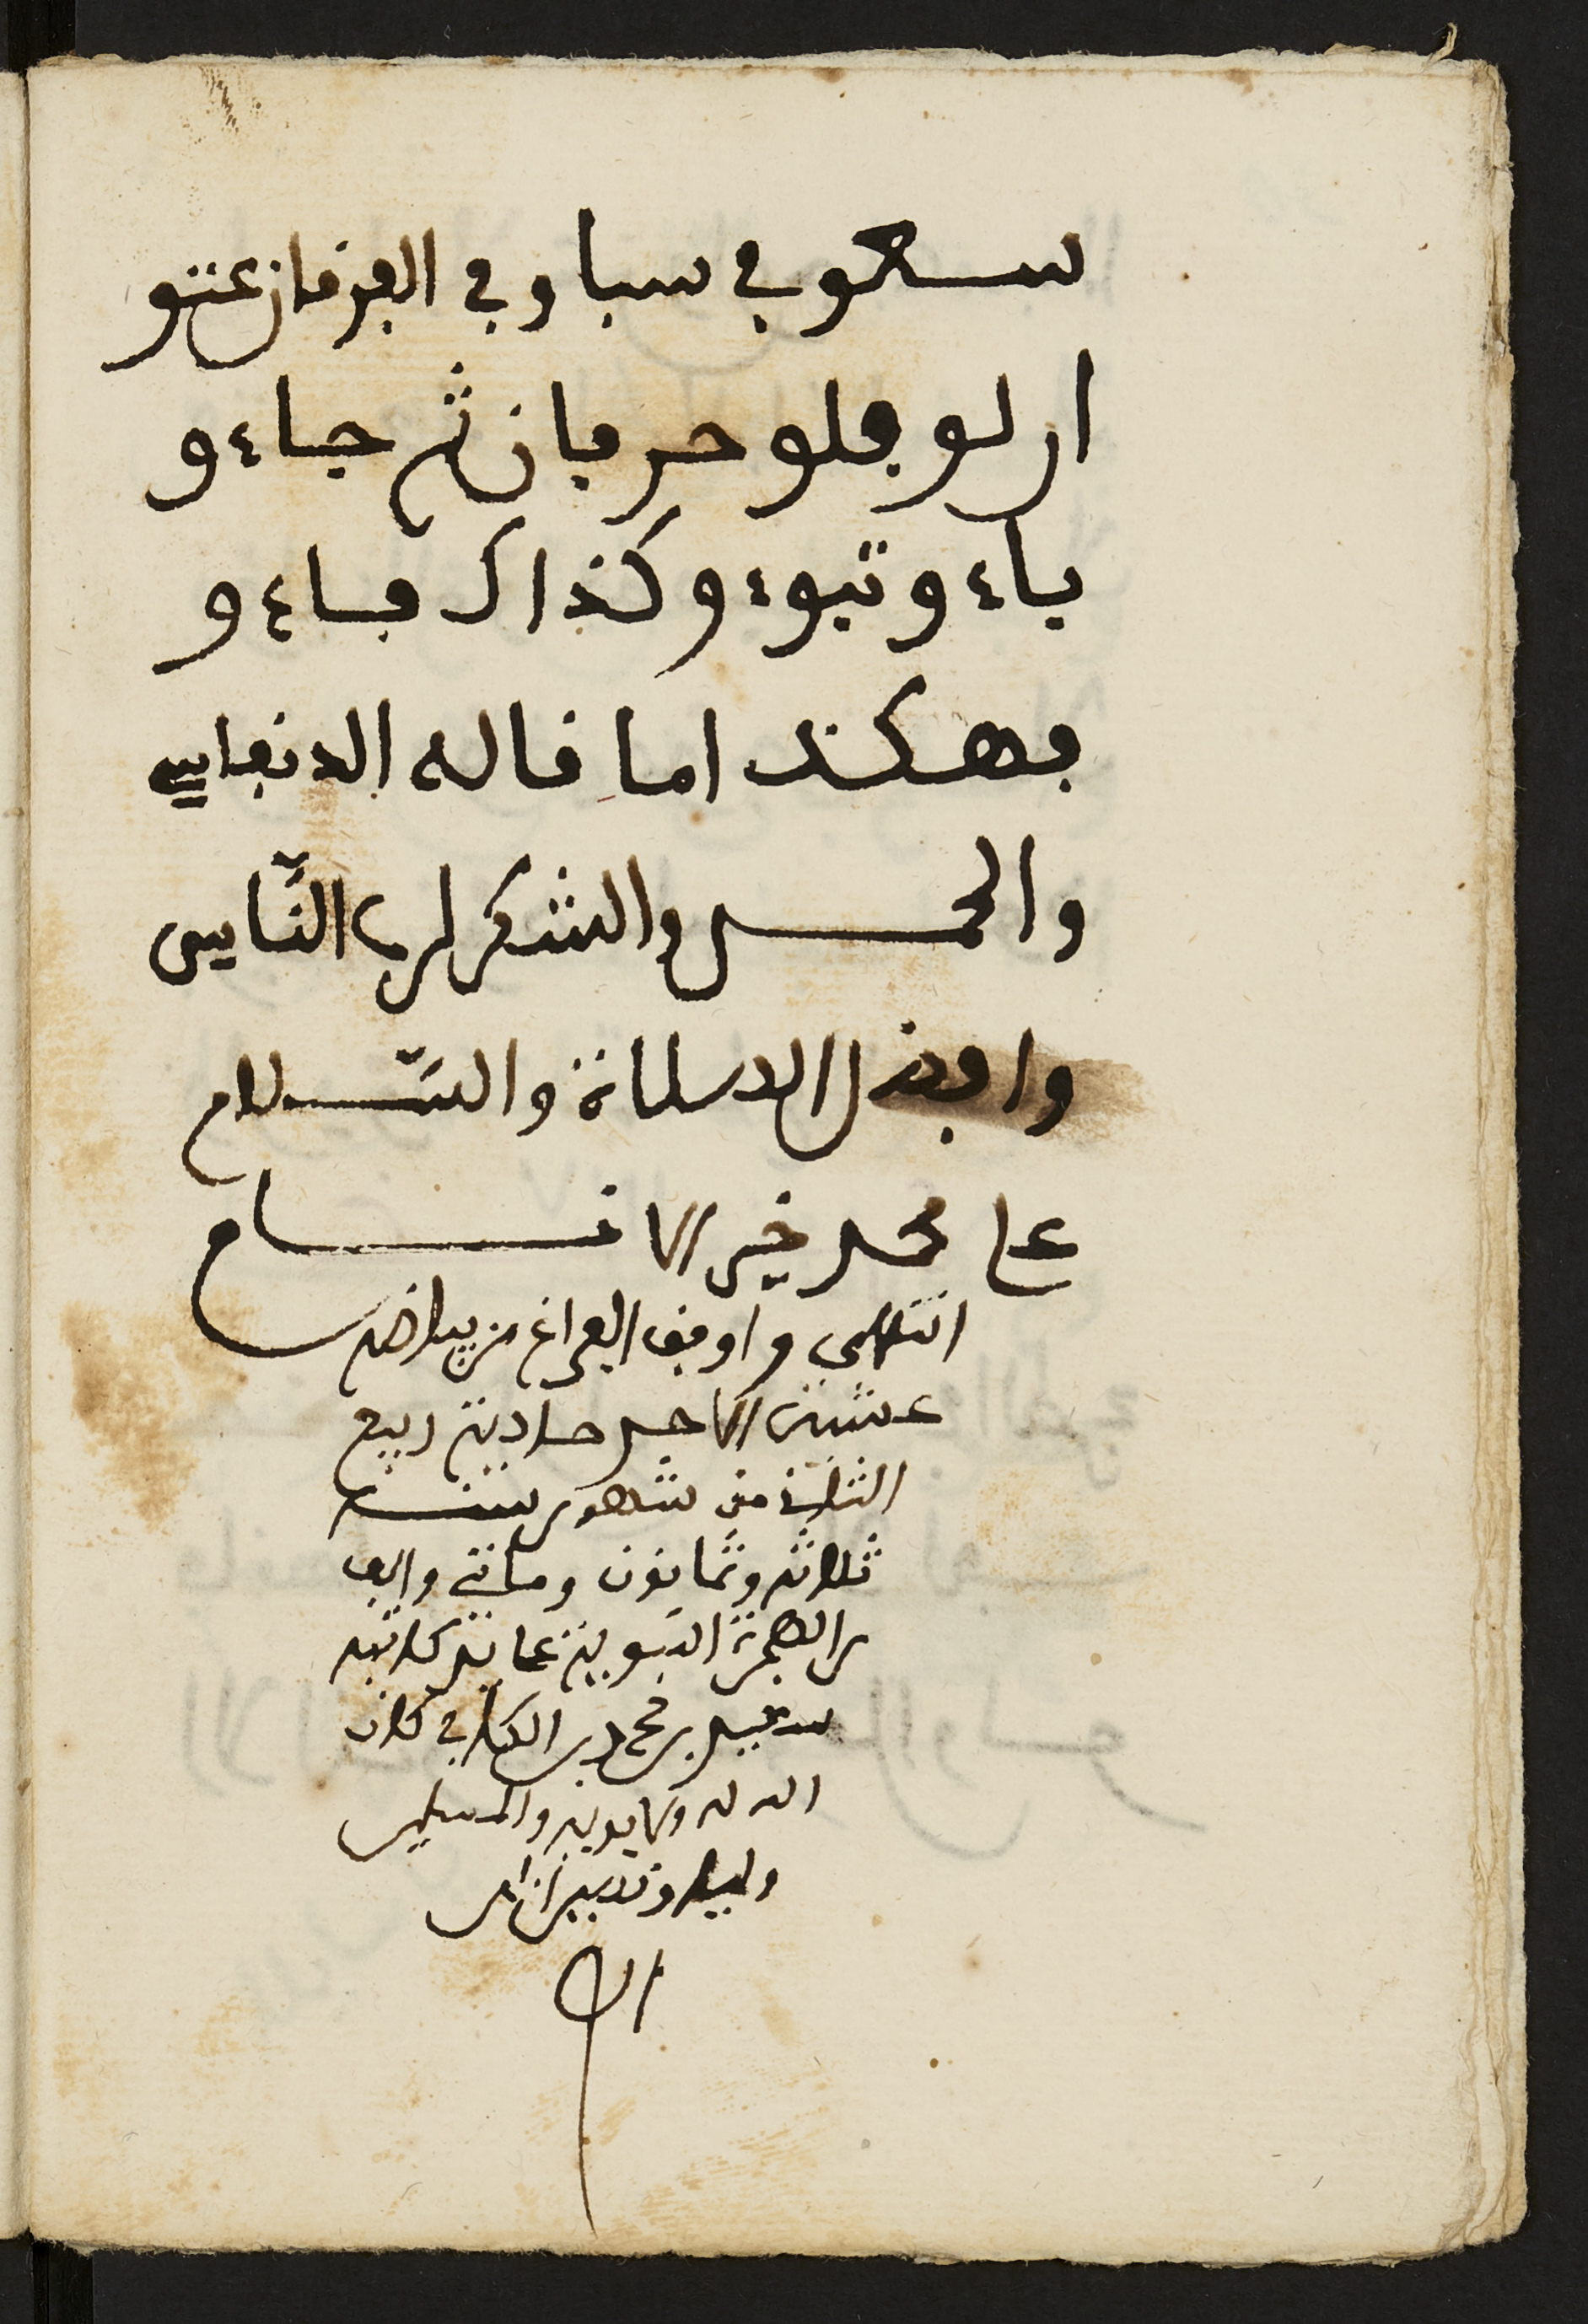 سعو في سبا وفي الفرقان عتو
او لو فلو حرفان ثم جاءو
باءو تبوءو وكذاك فاءو
فهكذا ما قاله الدنفاسي
والحمد والشكر لرب الناس
وافضل الصلاة والسلام
على محمد خير الانام
انتهى ووافق الفراغ من بياضه
عشية الاحد حادية ربيع
الثاني من شهور سنة
ثلاثة وثمانون ومائة والف
من الهجرة النبوية على يد كاتبه
سعيد بن محمد بن كان
الله له ولابويه والمسلمين